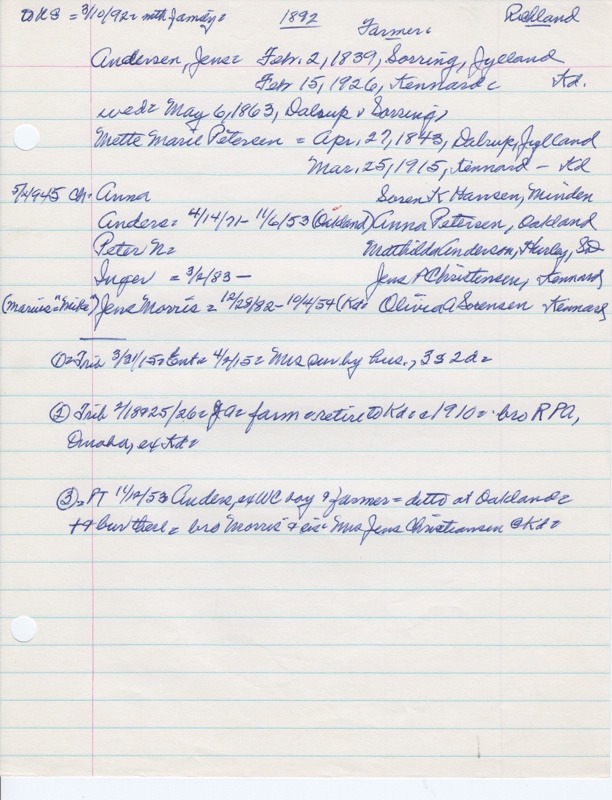 to US = 3/10/92 = with family = 1892 Richland
Farmer =
Andersen, Jens = Feb. 2, 1839, Sorring, Jylland
Feb 15, 1926, Kennard = Kd.
wed = May 6, 1863, Dalrup, Sorring,
Mette Marie Petersen = Apr. 27, 1843, Dalrup, Jylland
Mar. 25, 1915, Kennard - Kd
ch = Anna Soren K Hansen, Minden
Anders = 4/14/71 - 11/6/53 (Oakland) Anna Petersen, Oakland
Peter N = Mathilda Anderson, Hurley, SD
Inger = 3/2/83 - Jens P Christensen, Kennard
(Marius = "Mike") Jens Morris = 12/28/82 - 10/4/54 (Kd = Olivia A Sorensen Kennard
① = Trib 3/31/15 = Ent = 4/2/15 = Mrs sur. by hus., 3 s 2 d =
② Trib 2/18 & 25/26 = JA = farm = retire to Kd = 1910 = bro R PA,
Omaha, ex Kd =
③ = PT 11/12/53 Anders, ex WC boy & farmer = ditto at Oakland =
++ bur there = bro Morris & sis = Mrs Jens Christiansen @ Kd =